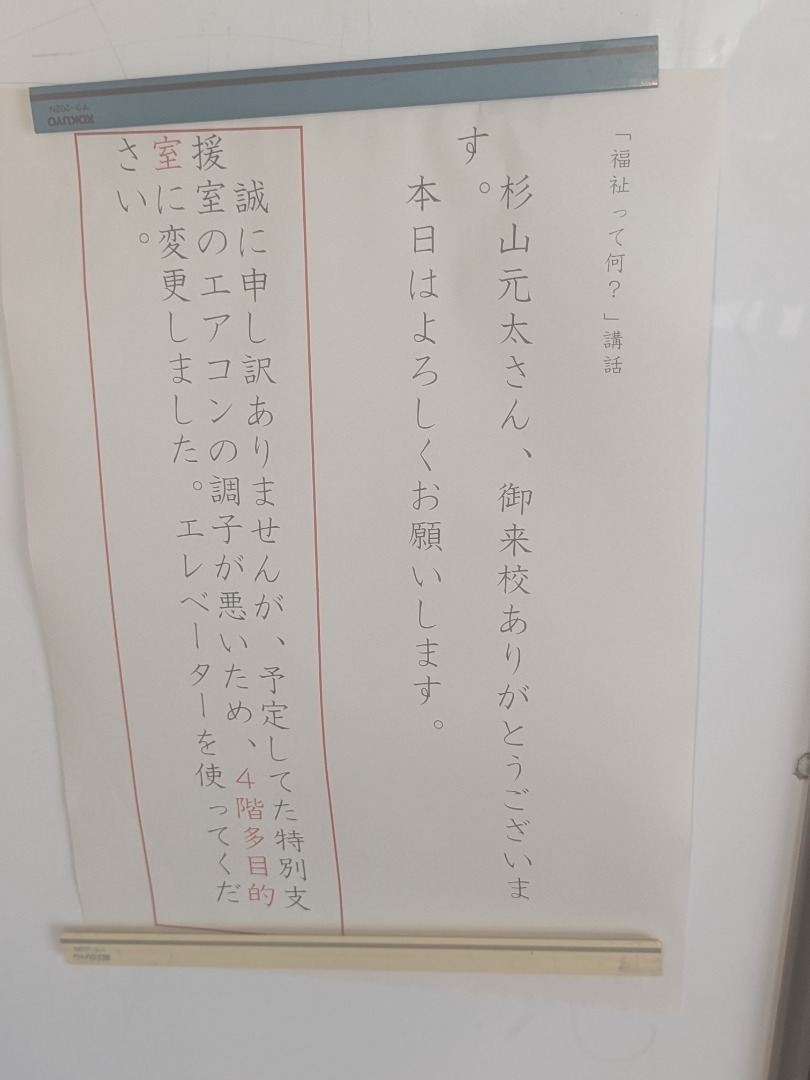 「福祉って何？」講話
杉山元太さん、御来校ありがとうございま
す。
本日はよろしくお願いします。
誠に申し訳ありませんが、予定してた特別支
援室のエアコンの調子が悪いため、４階多目的
室に変更しました。エレベーターを使ってくだ
さい。
KOKUYO